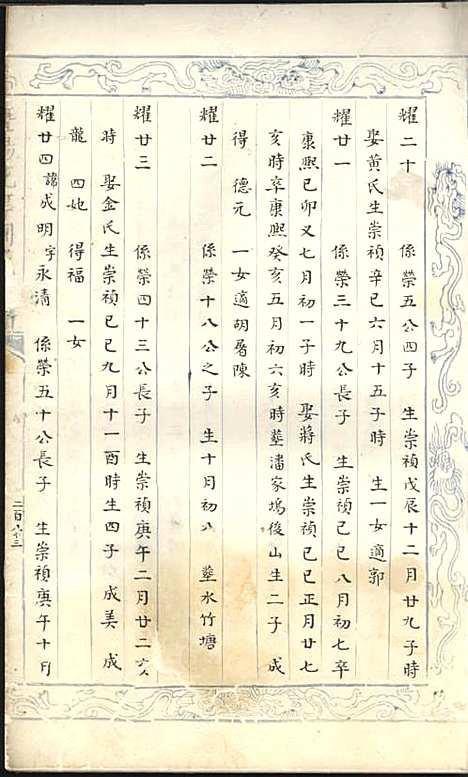 耀二十 係榮五公四子 生崇禎戊辰十二月廿九子時
娶黄氏生崇禎辛巳六月十五子時 生一女適郭
耀廿一 係榮三十九公長子 生崇禎己巳八月初七卒
康熙己卯又七月初一子時 娶蔣氏生崇禎己巳正月廿七
亥時卒康熙癸亥五月初六亥時塟潘家塢後山生二子 成
得 德元 一女適胡厝陳
耀廿二 係榮十八公之子 生十月初八 塟水竹塘
耀廿三 係榮四十三公長子 生崇禎庚午二月廿二
時 娶金氏生崇禎己巳九月十一酉時生四子 成美 成
龍 四她 得福 一女
耀廿四諱成明字永清 係榮五十公長子 生崇禎庚午十月
二百八十三